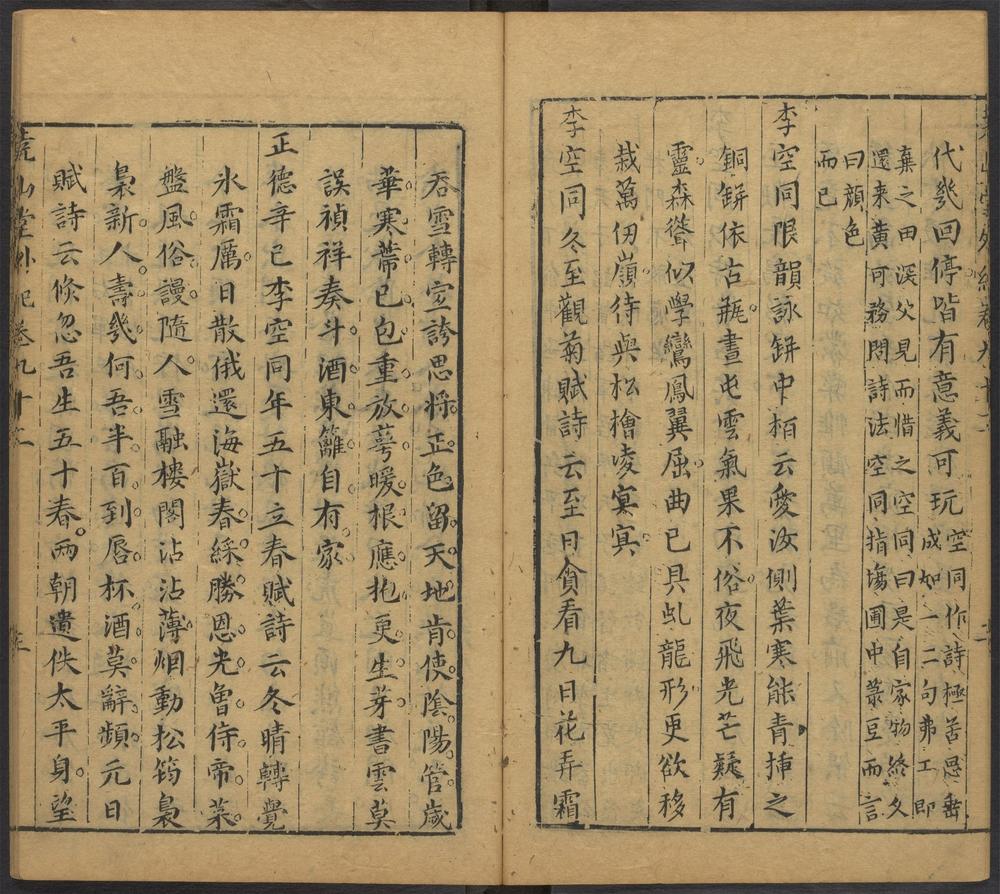 代幾回停皆有意義可玩空同作詩極苦思垂
成如一二句弗工即
棄之田深父見而惜之空同曰是自家物終久
還来黄可務問詩法空同指塲圃中叢豆而言
曰顔色
而已
李空同限韻詠缾中栢云愛汝側葉寒能青挿之
銅缾依古瓶晝屯雲氣果不俗夜飛光芒疑有
靈森聳似學鸞鳳翼屈曲已具虬龍形更欲移
栽萬仞嶺待與松檜凌冥冥
李空同冬至觀菊賦詩云至日貪看九日花弄霜
呑雪轉堂誇思将正色留天地肯使陰陽管歲
華寒蔕已包重放蕚暖根應抱更生芽書雲莫
誤禎祥奏斗酒東籬自有家
正德辛巳李空同年五十立春賦詩云冬晴轉覺
氷霜厲日散俄還海嶽春綵勝恩光曽侍帝菜
盤風俗謾隨人雪融樓閣沾沾薄烟動松筠裊
裊新人壽幾何吾半百到唇杯酒莫辭頻元日
賦詩云倐忽吾生五十春兩朝遺佚太平身望
堯山堂外紀卷九十一